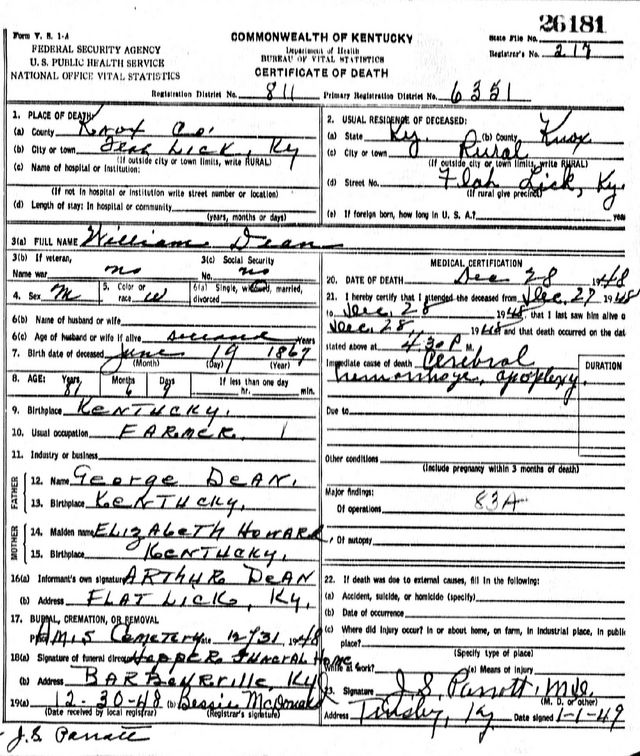 26181
Form V. S. 1-A
COMMONWEALTH OF KENTUCKY
State File No.
FEDERAL SECURITY AGENCY
U. S. PUBLIC HEALTH SERVICE
NATIONAL OFFICE VITAL STATISTICS
Department of Health
BUREAU OF VITAL STATISTICS
CERTIFICATE OF DEATH
Registrar's No. 217
Registration District No. 811 Primary Registration District No. 6351
1. PLACE OF DEATH:
(a) County Knox Co.
(b) City or town Flat Lick, Ky
(If outside city or town limits, write RURAL)
(c) Name of hospital or institution:
(If not in hospital or institution write street number or location)
(d) Length of stay: In hospital or community
(years, months or days)
2. USUAL RESIDENCE OF DECEASED:
(a) State Ky. (b) County Knox
(c) City or town Rural
(If outside city or town limits, write RURAL)
(d) Street No. Flat Lick, Ky.
(If rural give precinct)
(e) If foreign born, how long in U. S. A.? years
3(a) FULL NAME William Dean
3(b) If veteran, 3(c) Social Security
Name war no No. no
4. Sex M 5. Color or race W 6(a) Single, widowed, married, divorced
6(b) Name of husband or wife
6(c) Age of husband or wife if alive Years
7. Birth date of deceased June 19 1867
(Month) (Day) (Year)
8. AGE: Years 81 Months 6 Days 9 If less than one day hr. min.
9. Birthplace KENTUCKY.
10. Usual occupation FARMER
11. Industry or business
FATHER
12. Name George DEAN.
13. Birthplace KENTUCKY.
MOTHER
14. Maiden name ELIZABETH HOWARD
15. Birthplace KENTUCKY.
16(a) Informant's own signature ARTHUR DEAN
(b) Address FLAT LICK, Ky.
17. BURIAL, CREMATION, OR REMOVAL
Place AMIS Cemetery Date 12/31 1948
18(a) Signature of funeral director HOPPER FUNERAL HOME
(b) Address BARBOURVILLE, KY
19(a) 12-30-48 (b) Bessie McDonald
(Date received by local registrar) (Registrar's signature)
J.S. Parrott
MEDICAL CERTIFICATION
20. DATE OF DEATH Dec 28 1948
21. I hereby certify that I attended the deceased from Dec. 27 1948
to Dec. 28 1948, that I last saw him alive o
Dec. 28, 1948 and that death occurred on the dat
stated above at 4:30 P M.
DURATION
Immediate cause of death Cerebral
hemorrhage, apoplexy.
Due to
Other conditions
(Include pregnancy within 3 months of death)
Major findings:
Of operations 83A
Of autopsy
22. If death was due to external causes, fill in the following:
(a) Accident, suicide, or homicide (specify)
(b) Date of occurrence
(c) Where did injury occur? In or about home, on farm, in industrial place, in public
place?
(Specify type of place)
While at work? (e) Means of injury
23. Signature J.S. Parrott, M.D.
(M. D. or other)
Address Tinsley, Ky Date signed 1-1-49